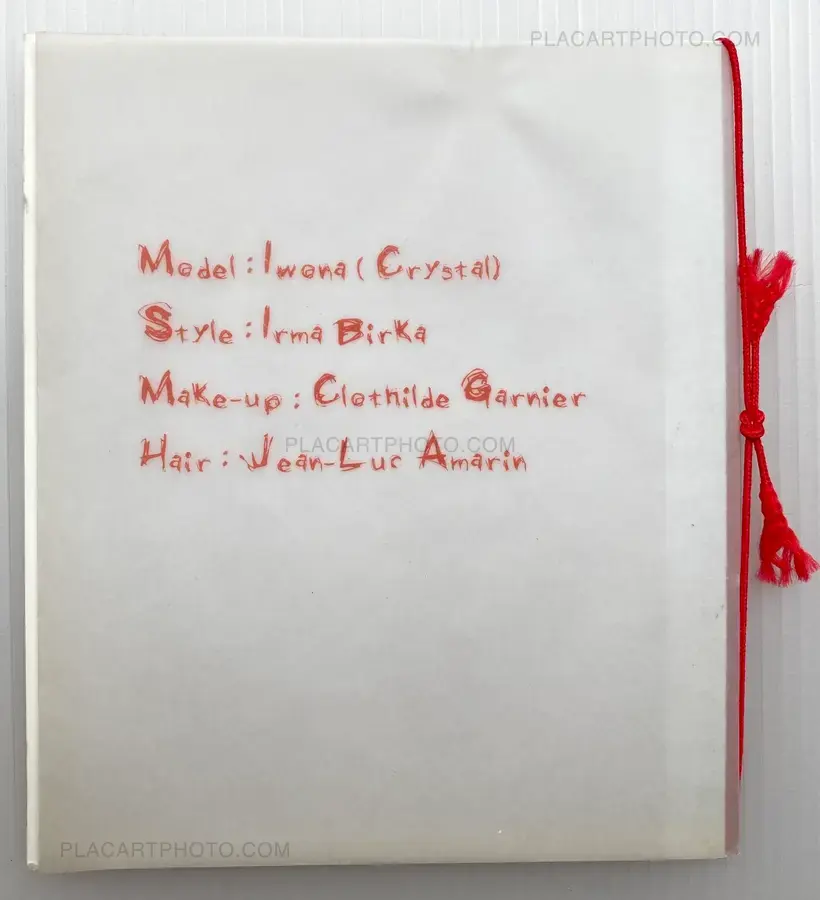 PLACARTPHOTO.COM
Model : Iwona ( Crystal)
Style : Irma Birka
Make-up : Clothilde Garnier
PLACARTPHOTO.COM
Hair : Jean-Luc Amarin
PLACARTPHOTO.COM